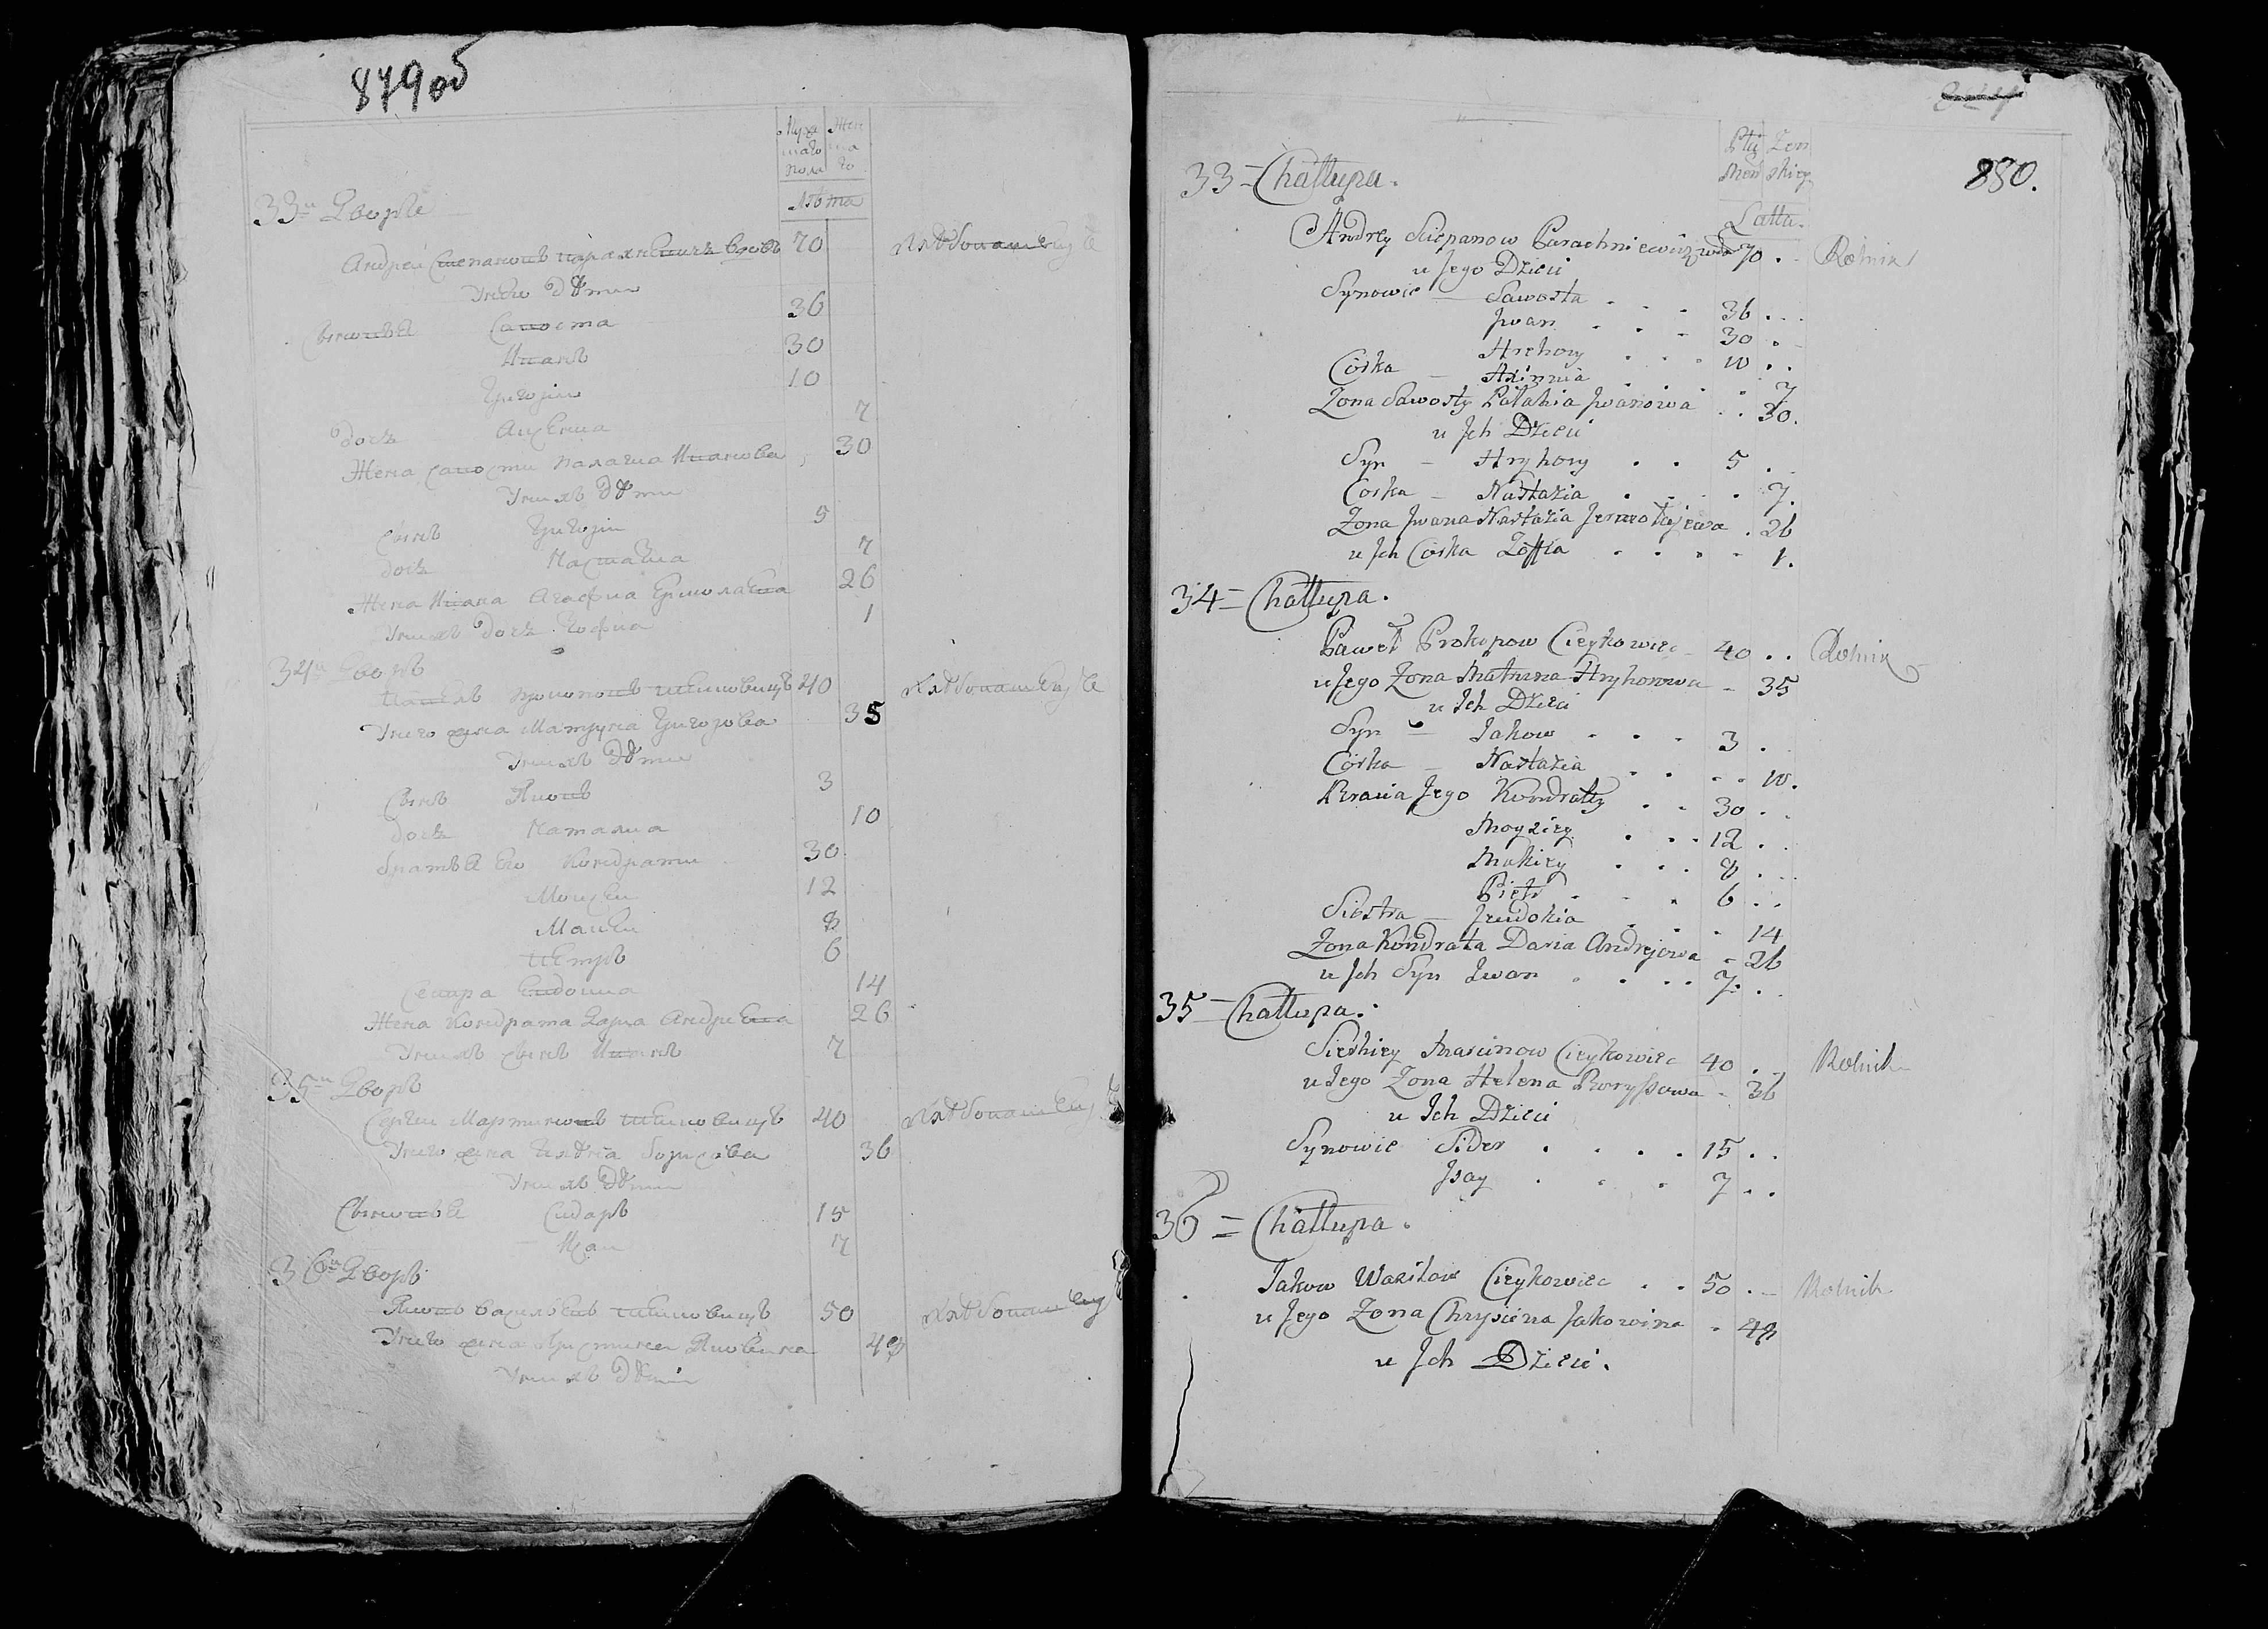 879 об
Муже Жен
скаго ска
пола го
Лѣта
33й Дворъ
Андрей Степановъ Парахневичъ вдовъ 70 Хлѣбопашецъ
У него дѣти
Сыновья Савоста 36
Иванъ 30
Григорiи 10
дочь Аксенiа 7
Жена Савосты Палагиа Иванова 30
У нихъ дѣти
Сынъ Григорiи 5
дочь Настасиа 7
Жена Ивана Агафиа Ермолаева 26
У нихъ дочь Зофиа 1
34й Дворъ
Павелъ Прокоповъ 40 Хлѣбопашецъ
У него жена Матруна Григорова 35
У нихъ дѣти
Сынъ Яковъ 3
дочь Наталиа 10
братья его Кондрати 30
Моисеи 12
Макеи 8
Петръ 6
Сестра Евдокиа 14
Жена Кондрата Дариа Андреева 26
У нихъ сынъ Иванъ 7
35й Дворъ
Сергеи Мартиновъ 40 Хлѣбопашецъ
У него жена Борисова 36
У нихъ дѣти
Сыновья Сидаръ 15
Исаи 7
36й Дворъ
Яковъ Васильевъ 50 Хлѣбопашецъ
У него жена Христина 48
У нихъ дѣти
880.
Płci Zen
Męs skiey
Latta.
33 = Chattupa.
Andrey Sciepanow Parachniewicz wdo 70 . Rolnik
u Jego Dzieci
Synowie – Sawosta . . . 36 . .
Jwan . . . 30 .
Hrehory . . . 10 . .
Córka – Axinnia . . . 7
Zona Sawosty Pałahia Jwanowa . . 30.
u Jch Dzieci
Syn – Hryhory . . 5 . .
Corka – Nastazia . . . 7.
Zona Jwana Nastazia Jermołajewa . 26
u Jch Córka Zoffia . . . . 1.
34 = Chattupa.
Paweł Prokopow Cieykowicz – 40 . . Rolnik
u Jego Zona Matruna Hryhorowa – 35
u Jch Dzieci
Syn – Jakow . . . 3 .
Córka – Nastazia . . . . 10.
Bracia Jego Kondraty . . 30 . .
Moyziey . . . 12 . .
Makiey . . . 8 . .
Pietr . . . 6 . .
Siestra – Jeudokia . . . 14
Zona Kondrata Daria Andrejowa – 26
u Jch Syn Jwan . . . . 7 . .
35 = Chattupa.
Sierhiey Marcinow Cieykowicz 40 . . Rolnik
u Jego Zona Helena Boryssowa – 36
u Jch Dzieci
Synowie Sider . . . . 15 . .
Jsay . . . 7 . .
36 = Chattupa.
Jakow Wasilow Cieykowicz . . 50 . – Rolnik
u Jego Zona Chryscina Jakowina . 48
u Jch Dzieci.